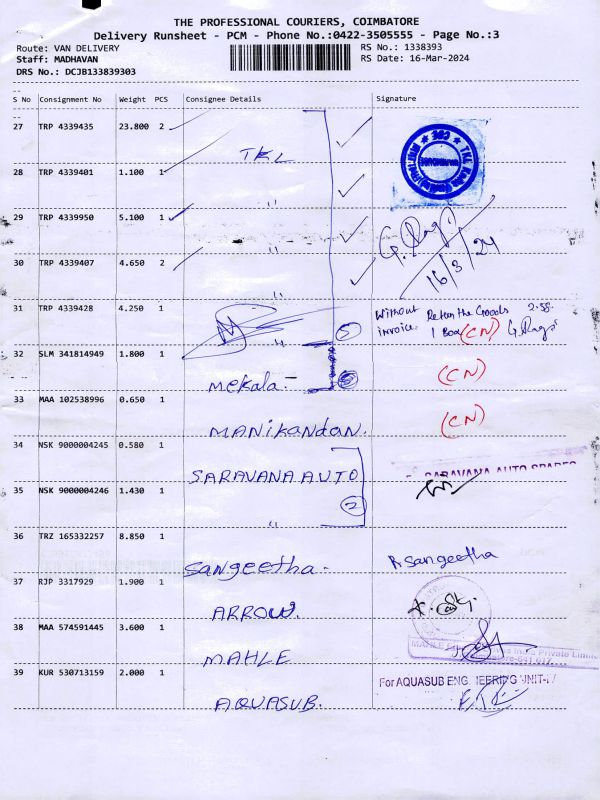 THE PROFESSIONAL COURIERS, COIMBATORE
Delivery Runsheet - PCM - Phone No.:0422-3505555 - Page No.:3
Route: VAN DELIVERY
RS No.: 1338393
Staff: MADHAVAN
RS Date: 16-Mar-2024
DRS No.: DCJB133839303
S No Consignment No Weight PCS Consignee Details Signature
27 TRP 4339435 23.800 2
TKL
28 TRP 4339401 1.100 1
"
29 TRP 4339950 5.100 1
"
30 TRP 4339407 4.650 2
"
16/3/24
31 TRP 4339428 4.250 1
Without Return the Goods 2.58
invoice. 1 Box (CN)
" 5
32 SLM 341814949 1.800 1
Mekala.- (CN)
33 MAA 102538996 0.650 1
MANikandan. (CN)
34 NSK 9000004245 0.580 1
SARAVANA AUTO
SARAVANA AUTO SPARES
35 NSK 9000004246 1.430 1
" 2
36 TRZ 165332257 8.850 1
Sangeetha. R Sangeetha
37 RJP 3317929 1.900 1
ARROW.
38 MAA 574591445 3.600 1
MAHLE
39 KUR 530713159 2.000 1
For AQUASUB ENGINEERING UNIT-IV
AQUASUB.